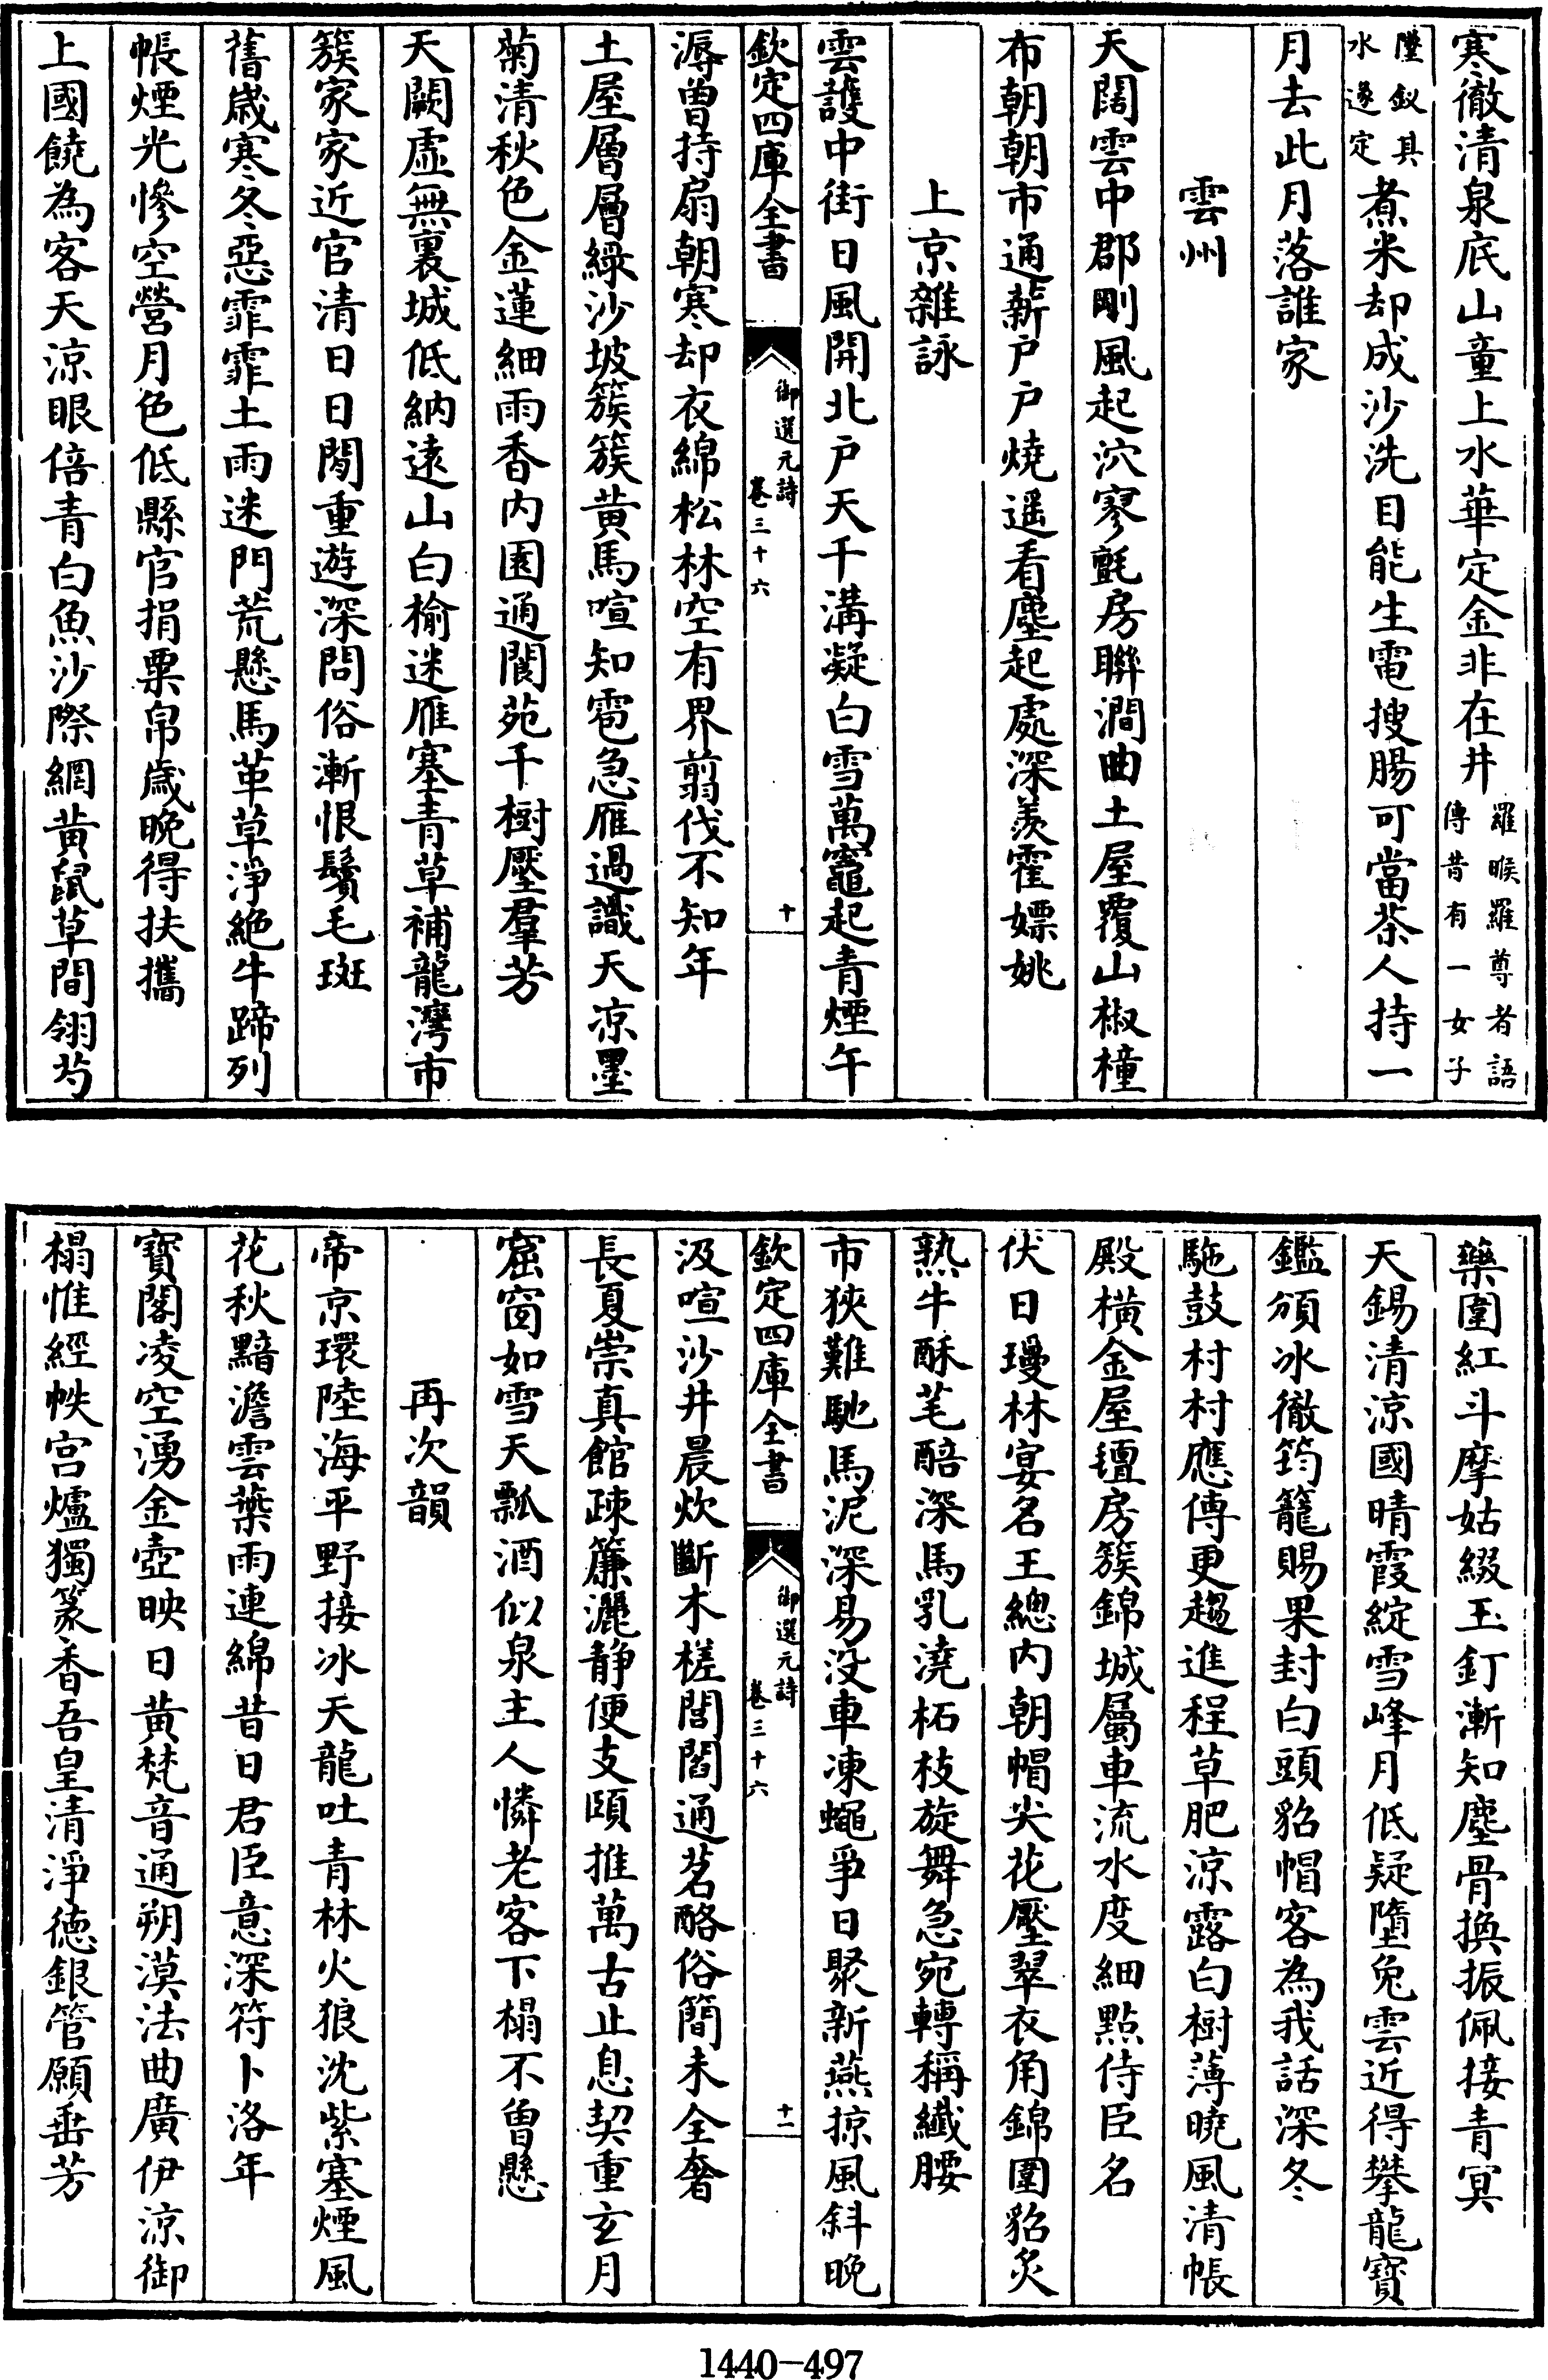 寒徹清泉底山童上水華定金非在井羅睺羅尊者語
傳昔有一女子
墮釵其
水遂定煮米却成沙洗目能生電搜腸可當茶人持一
月去此月落誰家
雲州
天闊雲中郡剛風起泬寥氈房聯澗曲土屋覆山椒橦
布朝朝市通薪戶戶燒遥看塵起處深羨霍嫖姚
上京雜詠
雲護中街日風開北戶天千溝凝白雪萬竈起青煙午
溽曾持扇朝寒却衣綿松林空有界翦伐不知年
土屋層層綠沙坡簇簇黄馬喧知雹急雁過識天凉墨
菊清秋色金蓮細雨香内園通閬苑千樹壓羣芳
天闕虛無裏城低納遠山白榆迷雁塞青草補龍灣市
簇家家近官清日日閒重遊深問俗漸恨鬢毛斑
舊歲寒冬惡霏霏土雨迷門荒懸馬革草淨絶牛蹄列
帳煙光慘空營月色低縣官捐粟帛歲晚得扶攜
上國饒為客天凉眼倍青白魚沙際網黄鼠草間翎芍
欽定四庫全書
御選元詩
卷三十六
十
藥圍紅斗摩姑綴玉釘漸知塵骨換振佩接青冥
天錫清涼國晴霞綻雪峰月低疑墮兔雲近得攀龍寶
鑑頒冰徹筠籠賜果封白頭貂帽客為我話深冬
駞鼓村村應傳更趨進程草肥涼露白樹薄曉風清帳
殿橫金屋氊房簇錦城屬車流水度細點侍臣名
伏日璦林宴名王總内朝帽尖花壓翠衣角錦圍貂炙
熟牛酥芼醅深馬乳澆柘枝旋舞急宛轉稱纖腰
市狹難馳馬泥深易没車凍蠅爭日聚新燕掠風斜晚
汲喧沙井晨炊斷木槎閭閻通茗酪俗簡未全奢
長夏崇真館疎簾灑靜便支頤推萬古止息契重玄月
窟窗如雪天瓢酒似泉主人憐老客下榻不曾懸
再次韻
帝京環陸海平野接冰天龍吐青林火狼沈紫塞煙風
花秋黯澹雲葉雨連綿昔日君臣意深符卜洛年
寶閣凌空湧金壺映日黄梵音通朔漠法曲廣伊涼御
榻惟經帙宫爐獨篆香吾皇清淨德銀管願垂芳
欽定四庫全書
御選元詩
卷三十六
十一
1440-497